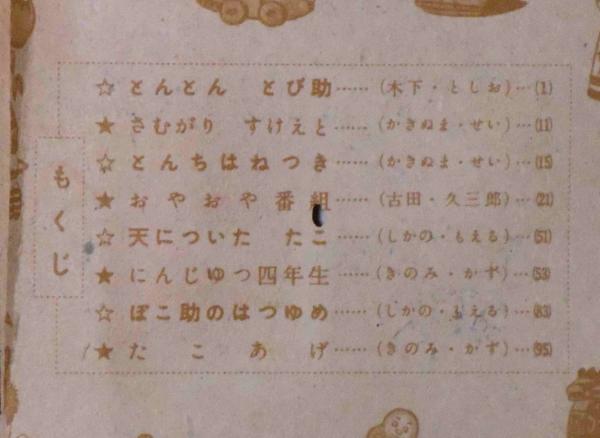 もくじ
☆ とんとん とび助……(木下・としお)…(1)
★ さむがり すけえと……(かきぬま・せい)…(11)
☆ とんちはねつき……(かきぬま・せい)…(15)
★ おやおや番組……(古田・久三郎)…(21)
☆ 天についた たこ……(しかの・もえる)…(51)
★ にんじゆつ四年生……(きのみ・かず)…(53)
☆ ぽこ助のはつゆめ……(しかの・もえる)…(83)
★ たこあげ……(きのみ・かず)…(95)